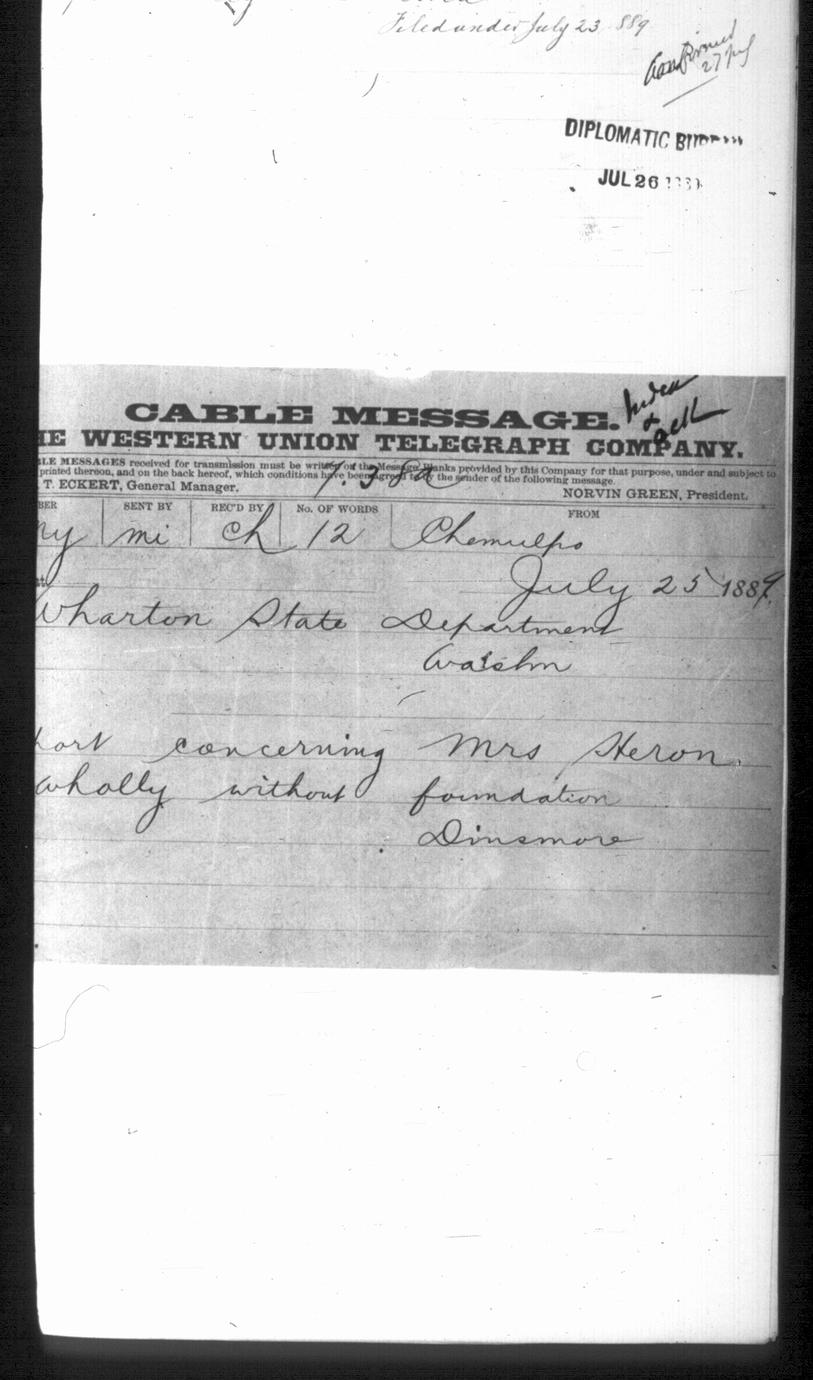 Filed under July 23 889
Confirmed
27 Jul
DIPLOMATIC
JUL 26
CABLE MESSAGE.
Index
&
E WESTERN UNION TELEGRAPH COMPANY.
LE MESSAGES received for transmission must be written on the Message Blanks provided by this Company for that purpose, under and subject to
printed thereon, and on the back hereof, which conditions have been agreed to by the sender of the following message.
T. ECKERT, General Manager.
NORVIN GREEN, President.
BER SENT BY REC'D BY No. OF WORDS FROM
ny mi ch 12 Chemulpo
July 25 1889.
Wharton State Department
Washn
port concerning Mrs Heron.
wholly without foundation
Dinsmore